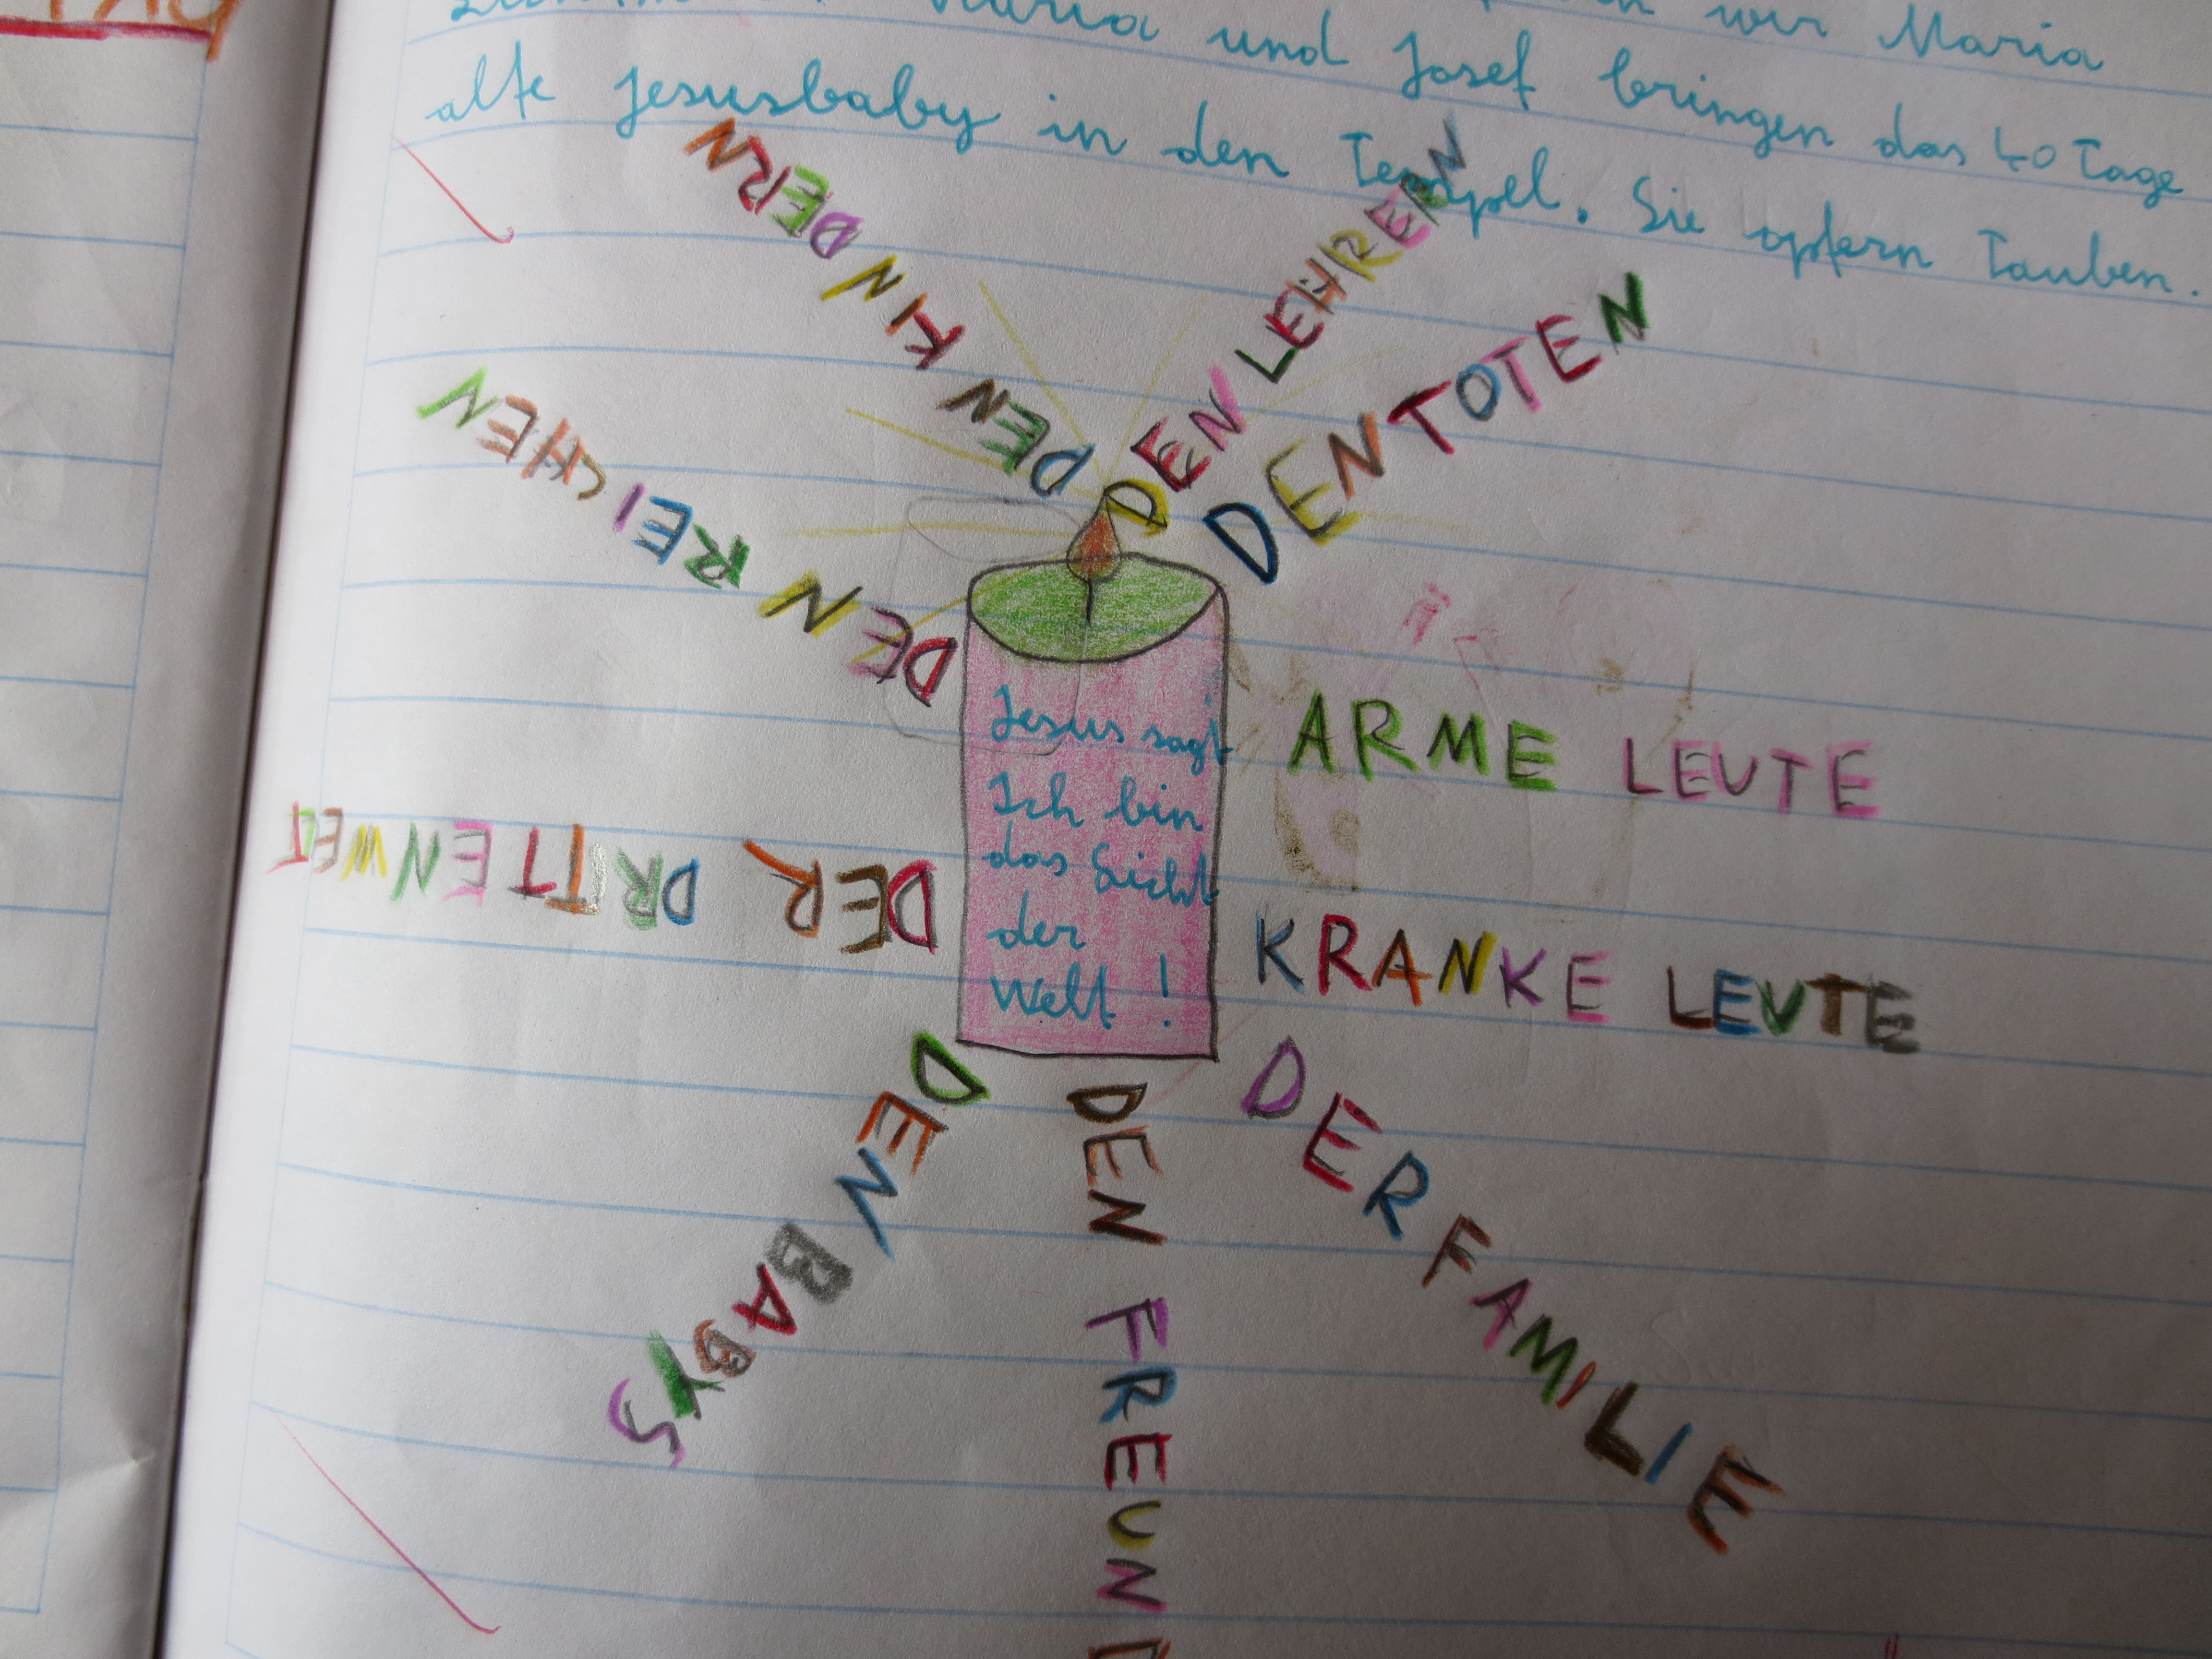 wir Maria
Maria und Josef bringen das 40 Tage
alte Jesusbaby in den Tempel. Sie opfern Tauben.
DEN KINDERN
DEN LEHRERN
DEN TOTEN
DEN REICHEN
Jesus sagt
Ich bin
das Licht
der
Welt!
ARME LEUTE
DER DRITTEN WELT
KRANKE LEUTE
DEN BABYS
DEN FREUND
DER FAMILIE